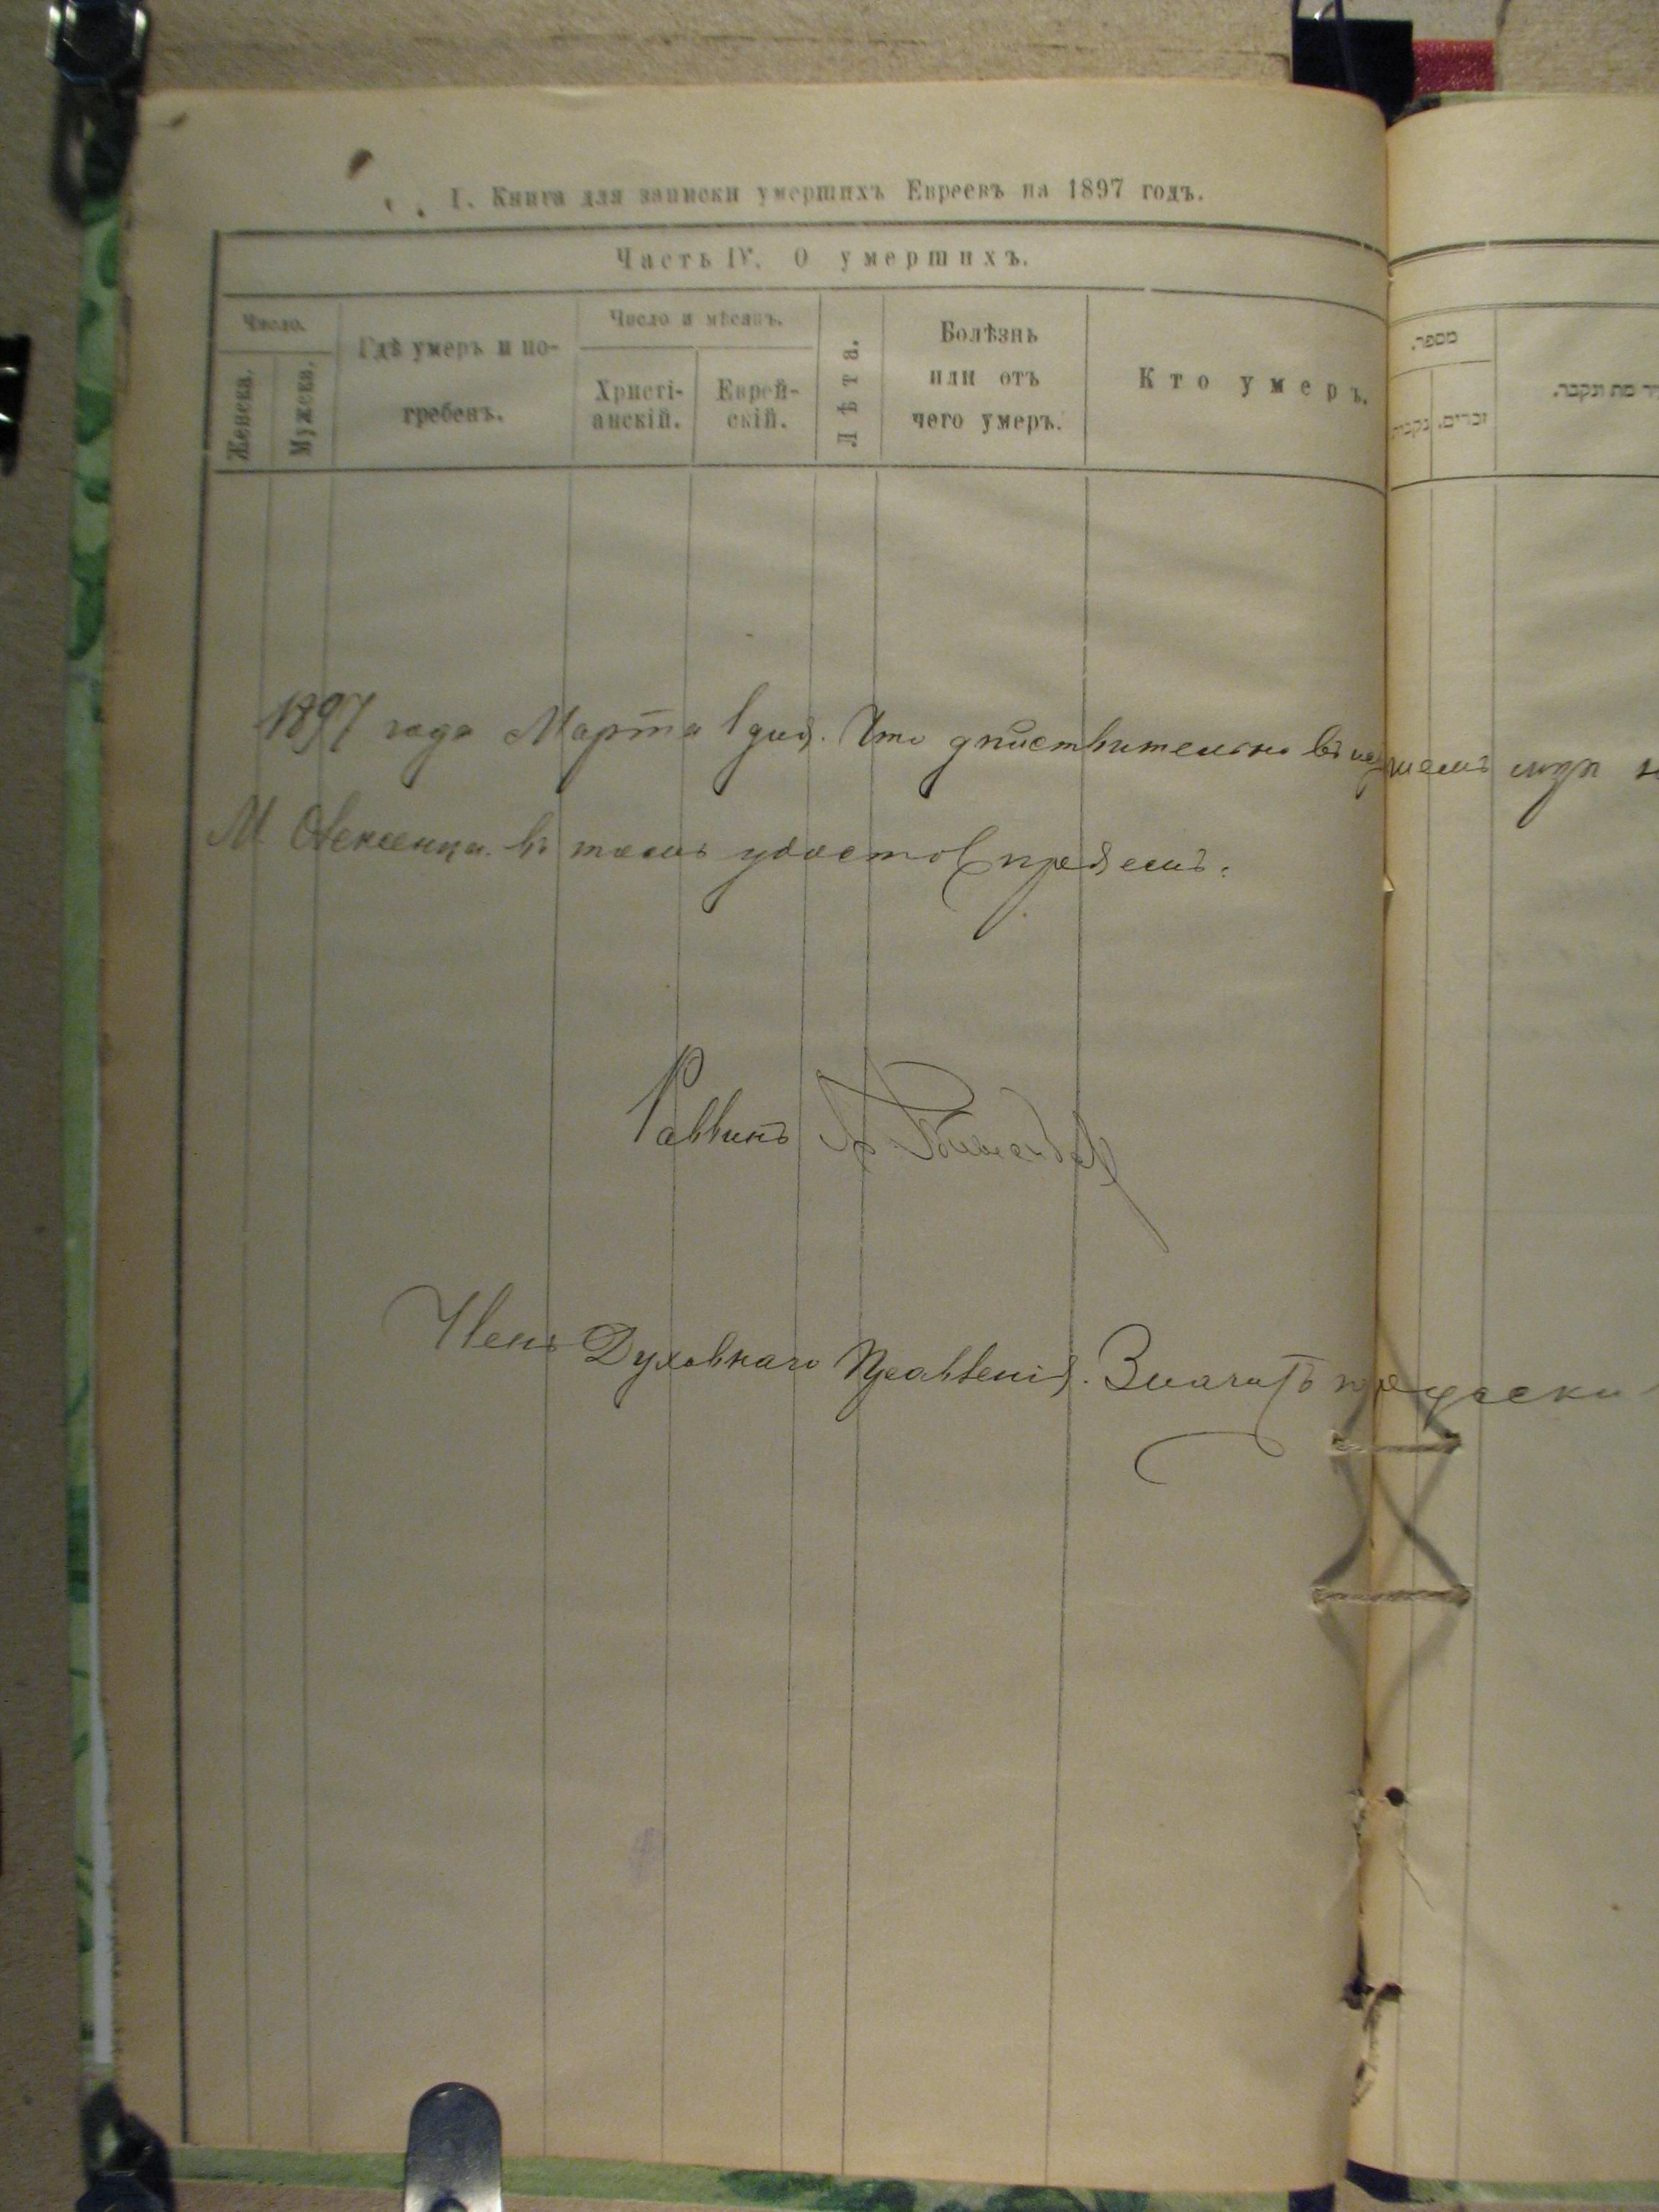 I. Книга для записки умершихъ Евреевъ на 1897 годъ.
Часть IV. О умершихъ.
Число.
Женска.
Мужеска.
Гдѣ умеръ и по-
гребенъ.
Число и мѣсяцъ.
Христі-
анскій.
Еврей-
скій.
Лѣта.
Болѣзнь
или отъ
чего умеръ.
Кто умеръ.
מספר.
זכרים.
נקבות
מת ונקבר.
1897 года Марта 1 дня. Что дѣйствительно въ
М въ томъ удостовѣряемъ.
Раввинъ
Членъ Духовнаго Правленія.